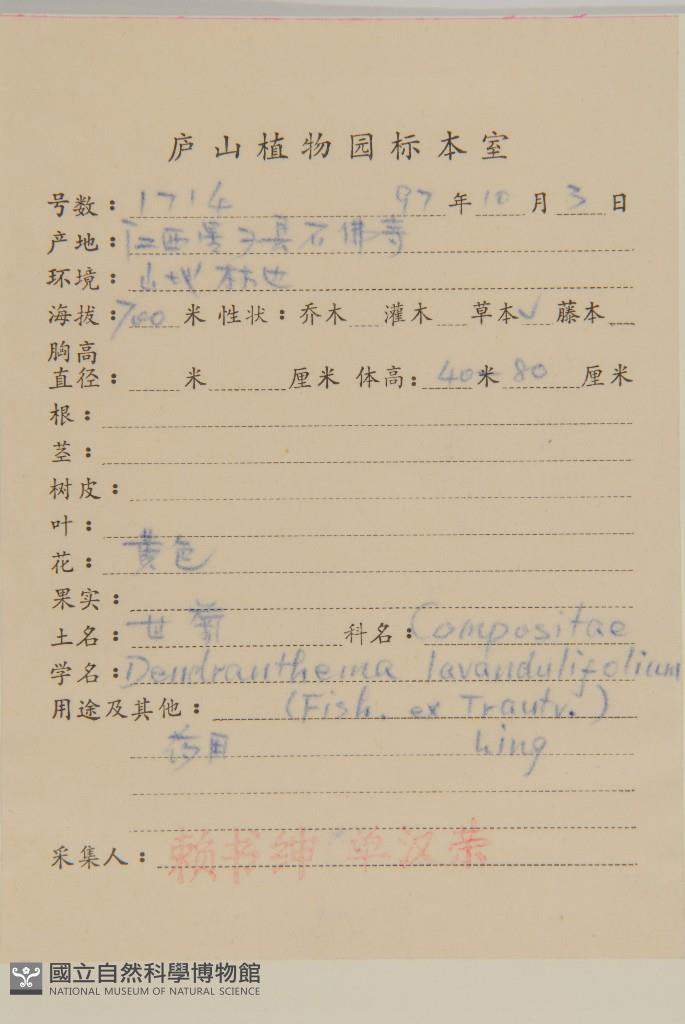 庐山植物园标本室
号数：1714 97年10月3日
产地：江西星子县石佛寺
环境：山坡林边
海拔：700米 性状：乔木 灌木 草本✓ 藤本
胸高
直径： 米 厘米 体高：40米80 厘米
根：
茎：
树皮：
叶：
花：黄色
果实：
土名：甘菊 科名：Compositae
学名：Dendranthema lavandulifolium
用途及其他： (Fish. ex Trautv.)
药用 Ling
采集人：赖书绅 单汉荣
國立自然科學博物館
NATIONAL MUSEUM OF NATURAL SCIENCE